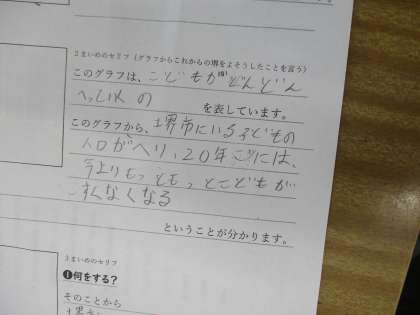 2まいめのセリフ（グラフからこれからの堺をよそうしたことを言う）
このグラフは、こどもがどんどん
へっていくの を表しています。
このグラフから、堺市にいる子どもの
人口がへり、20年ごには、
今よりもっともっとこどもが
すくなくなる
ということが分かります。
3まいめのセリフ
❶何をする？
そのことから